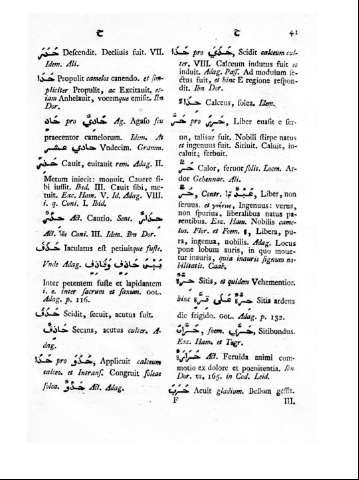 ح ح 41
حدر Descendit. Declivis fuit. VII.
Idem. Ali.
حدا Propulit camelos canendo. et sim-
pliciter Propulit, ac Excitavit, et-
iam Anhelavit, vocemque emisit. Ibn
Dor.
حاد pro حادي Ag. Agaso siu
praecentor camelorum. Idem. At
حادي عشر Undecim. Gramm.
حذر Cavit, euitauit rem. Adag. II.
Metum iniecit: monuit, Cauere si-
bi iussit. Ibid. III. Cauit sibi, me-
tuit. Exc. Ham. V. Id. Adag. VIII.
i. q. Coni. I. Ibid.
حذر Act. Cautio. Sens. حذار
Act. Coni. III. Idem. Ibn Dor.
حذف Iaculatus est petiuitque fuste.
Vnde Adag. بين حاذف وقاذف
Inter petentem fuste et lapidantem
i. e. inter sacrum et saxum. GOL.
Adag. p. 116.
حذق Scidit, secuit, acutus fuit.
حاذق Secans, acutus culter. A-
dag.
حذا pro حذو, Applicuit calceum
calceo. et Intrans. Congruit soleae
solea. حذو Act. Adag.
حذا pro حذي, Scidit calceum cul-
ter. VIII. Calceum indutus fuit et
induit. Adag. Pass. Ad modulum se-
ctus fuit, et hinc E regione respon-
dit. Ibn Dor.
حذاء Calceus, solea. Idem.
حر pro حرر, Liber euasit e ser-
uo, talisue fuit. Nobili stirpe natus
et ingenuus fuit. Sitiuit. Caluit, in-
caluit; ferbuit.
حر Calor, feruor solis. Locm. At-
dor Gehennae. Ali.
حر, Contr. عبد, Liber, non
seruus. et γνήσιος, Ingenuus: verus,
non spurius, liberalibus natus pa-
rentibus. Exc. Ham. Nobilis came-
lus. Flor. et Foem. ة, Libera, pu-
ra, ingenua, nobilis. Adag. Locus
pone lobum auris, in quo moue-
tur inauris, quia inauris signum no-
bilitatis. Caab.
حرة Sitis, et quidem Vehementior.
hinc حرة على قرة Sitis ardens
die frigido. GOL. Adag. p. 132.
حران, foem. حرى, Sitibundus.
Exc. Ham. et Togr.
حرارة Act. Feruida animi com-
motio ex dolore et poenitentia. Ibn
Dor. vs. 165. in Cod. Leid.
حرب Acuit gladium. Bellum gessit.
F III.